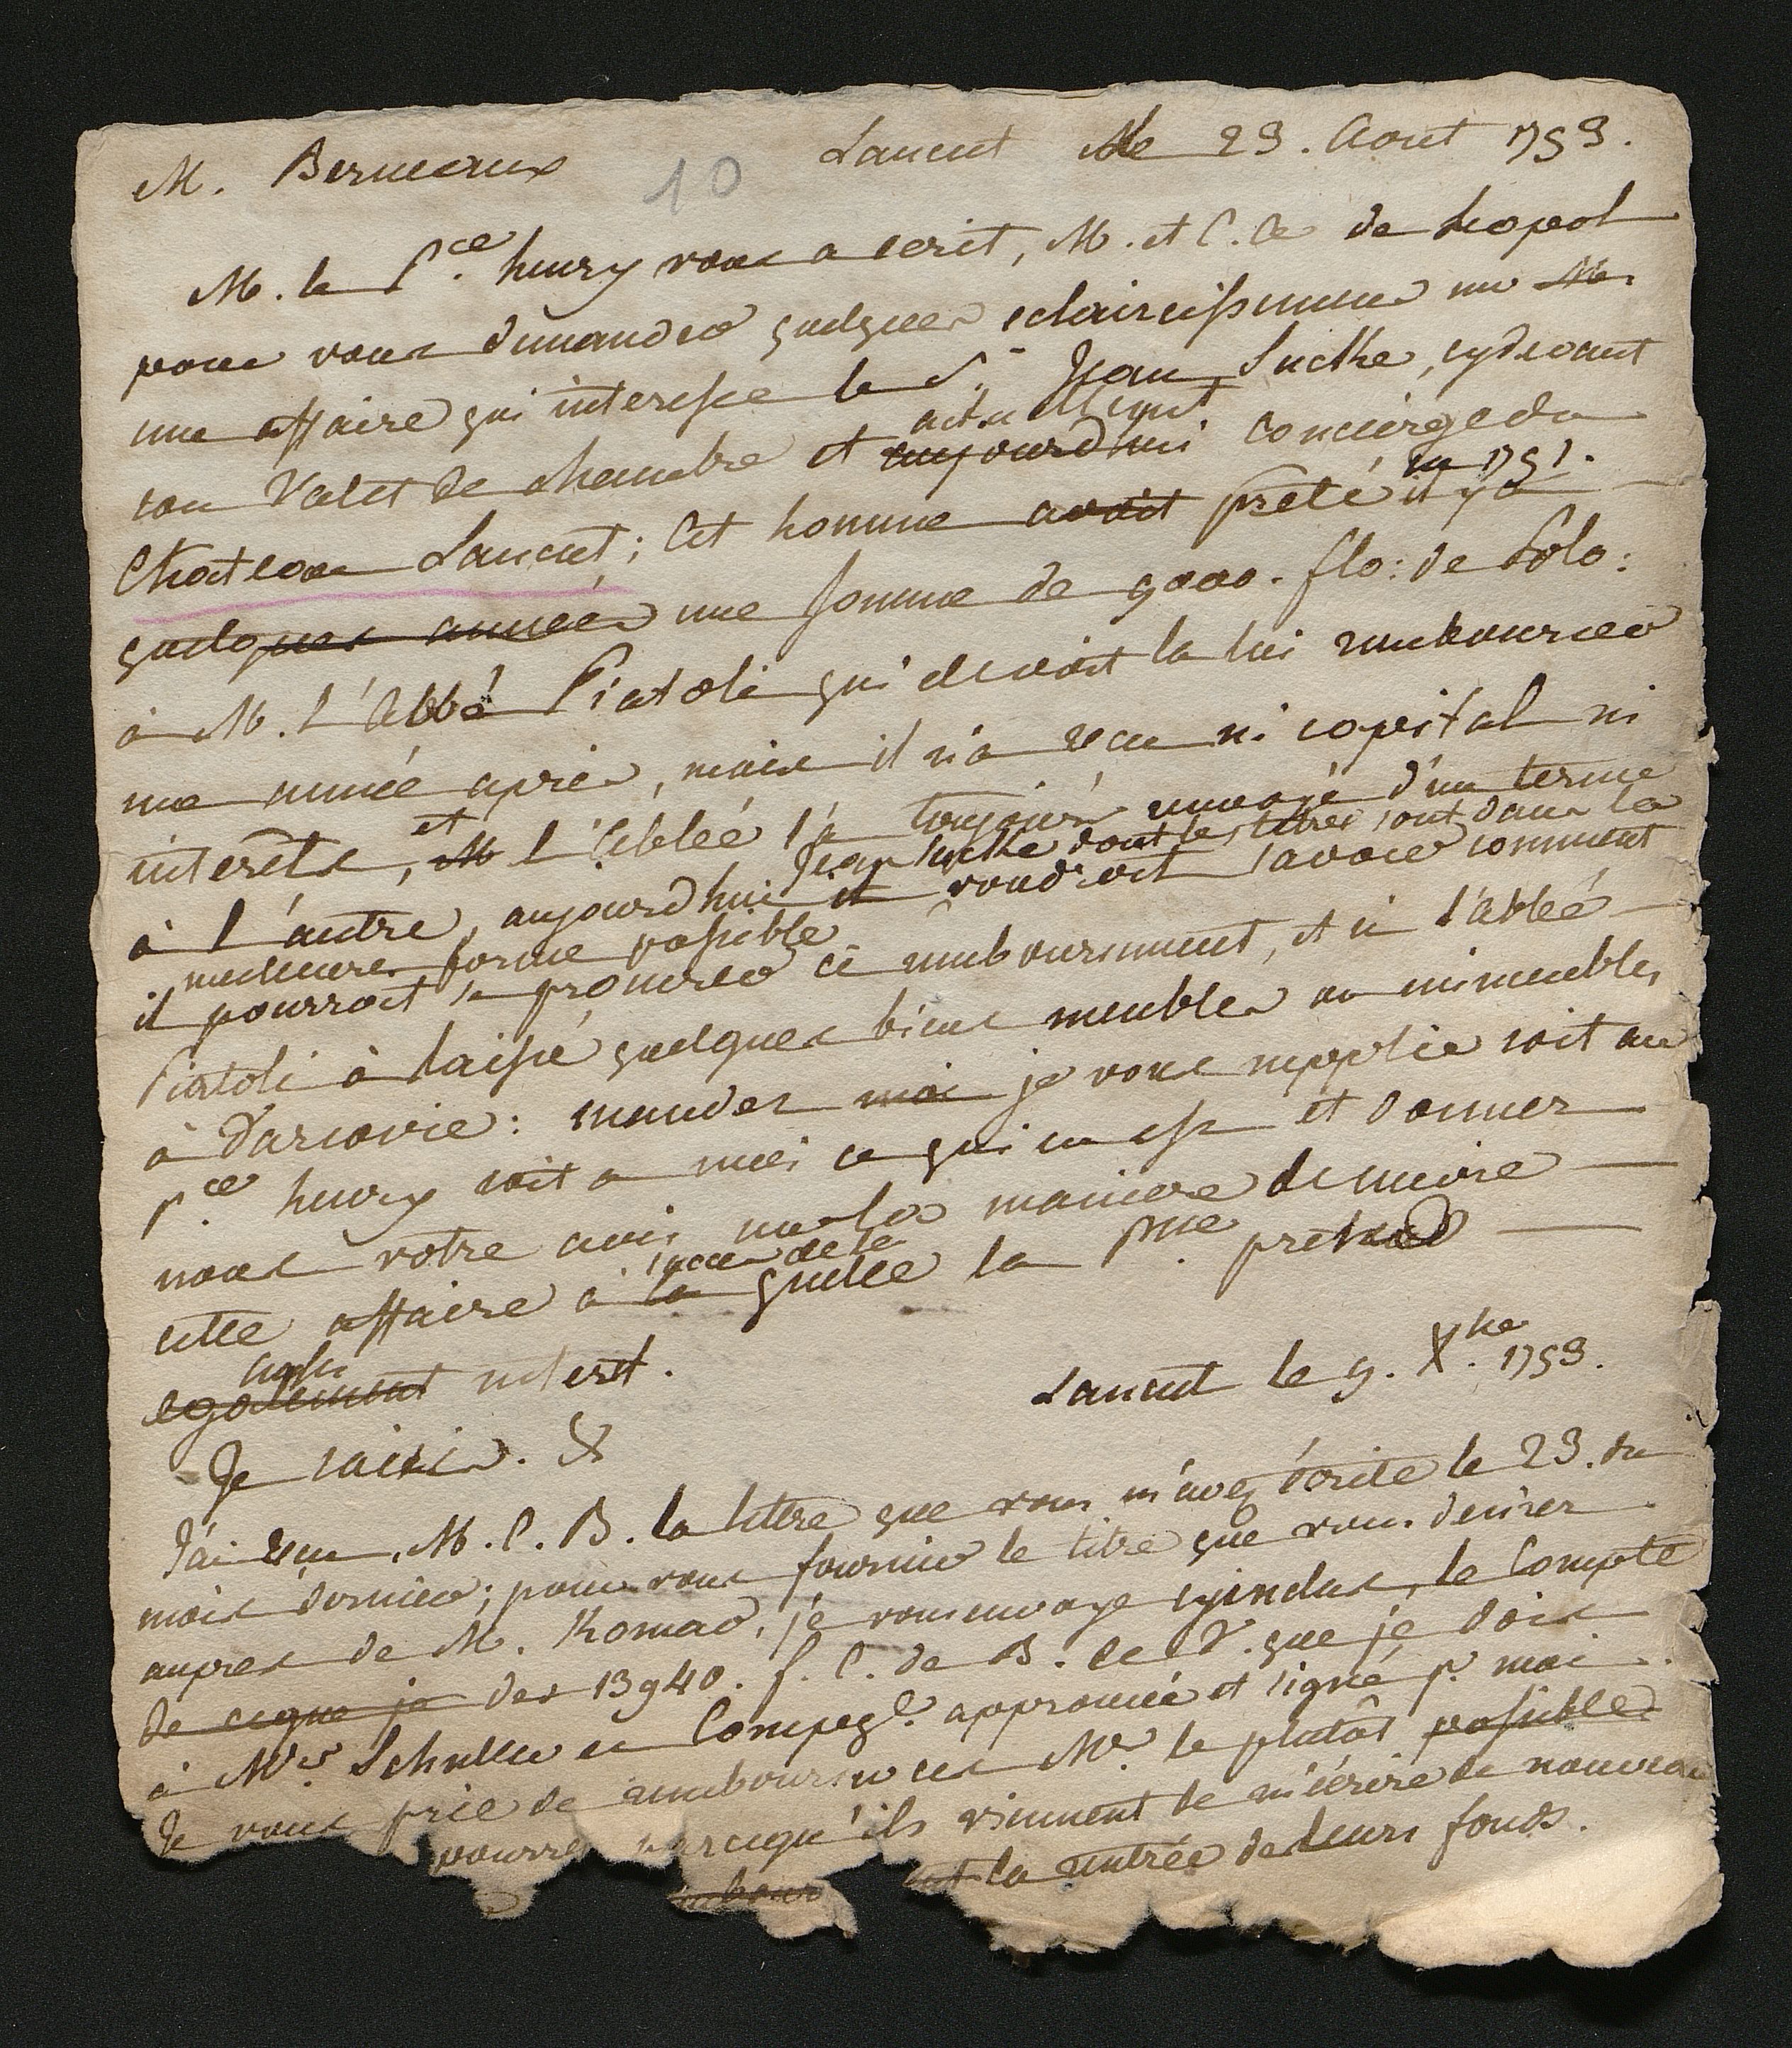 M. Berneaux 10 Lancut le 23. Aout 1793.
M. le P.ce henry vous a ecrit, M. et C. de Leopol
pour vous demander quelques eclaircissemens sur
une affaire qui interesse le S.r Jean Suthe, cydevant
son Valet de chambre et aujourdhui actuellement concierge du
Chateau Lancut; Cet homme avoit preté il y a en 1791.
quelques années une somme de 9000. flo: de Polo:
à M. l'Abbé Piatoli qui devoit la lui rembourser
une année après, mais il n'a reçu ni capital ni
interêts, M et l'Abbé l'a toujours renvoyé d'un terme
à l'autre, aujourdhui il Jean Suthe dont les titres sont dans la
meilleure forme possible voudroit savoir comment
il pourroit se procurer ce remboursement, et si l'abbé
Piatoli à laissé quelques biens meubles ou immeubles
à Varsovie: mandez moi je vous supplie soit au
P.ce henry soit a moi ce qui en est et donner
nous votre avis sur la maniere de suivre
cette affaire à la quelle la P.sse prend
egalement interet.
Je saisis. &
Lancut le 9. X.bre 1793.
J'ai reçu, M. C. B. la lettre que vous m'avez écrite le 23. du
mois dernier; pour vous fournir le titre que vous desirez
aupres de M. Roman, je vous envoye cyinclus, le Compte
de ceque je des 13940. f. C. de B. de V. que je dois
à M.rs Schuller et Compag.e approuvé et signé p. moi.
Je vous prie de rembourser ces M.rs le plutôt possible
pourrez parcequ'ils viennent de m'écrire de nouveau
la rentrée de leurs fonds.